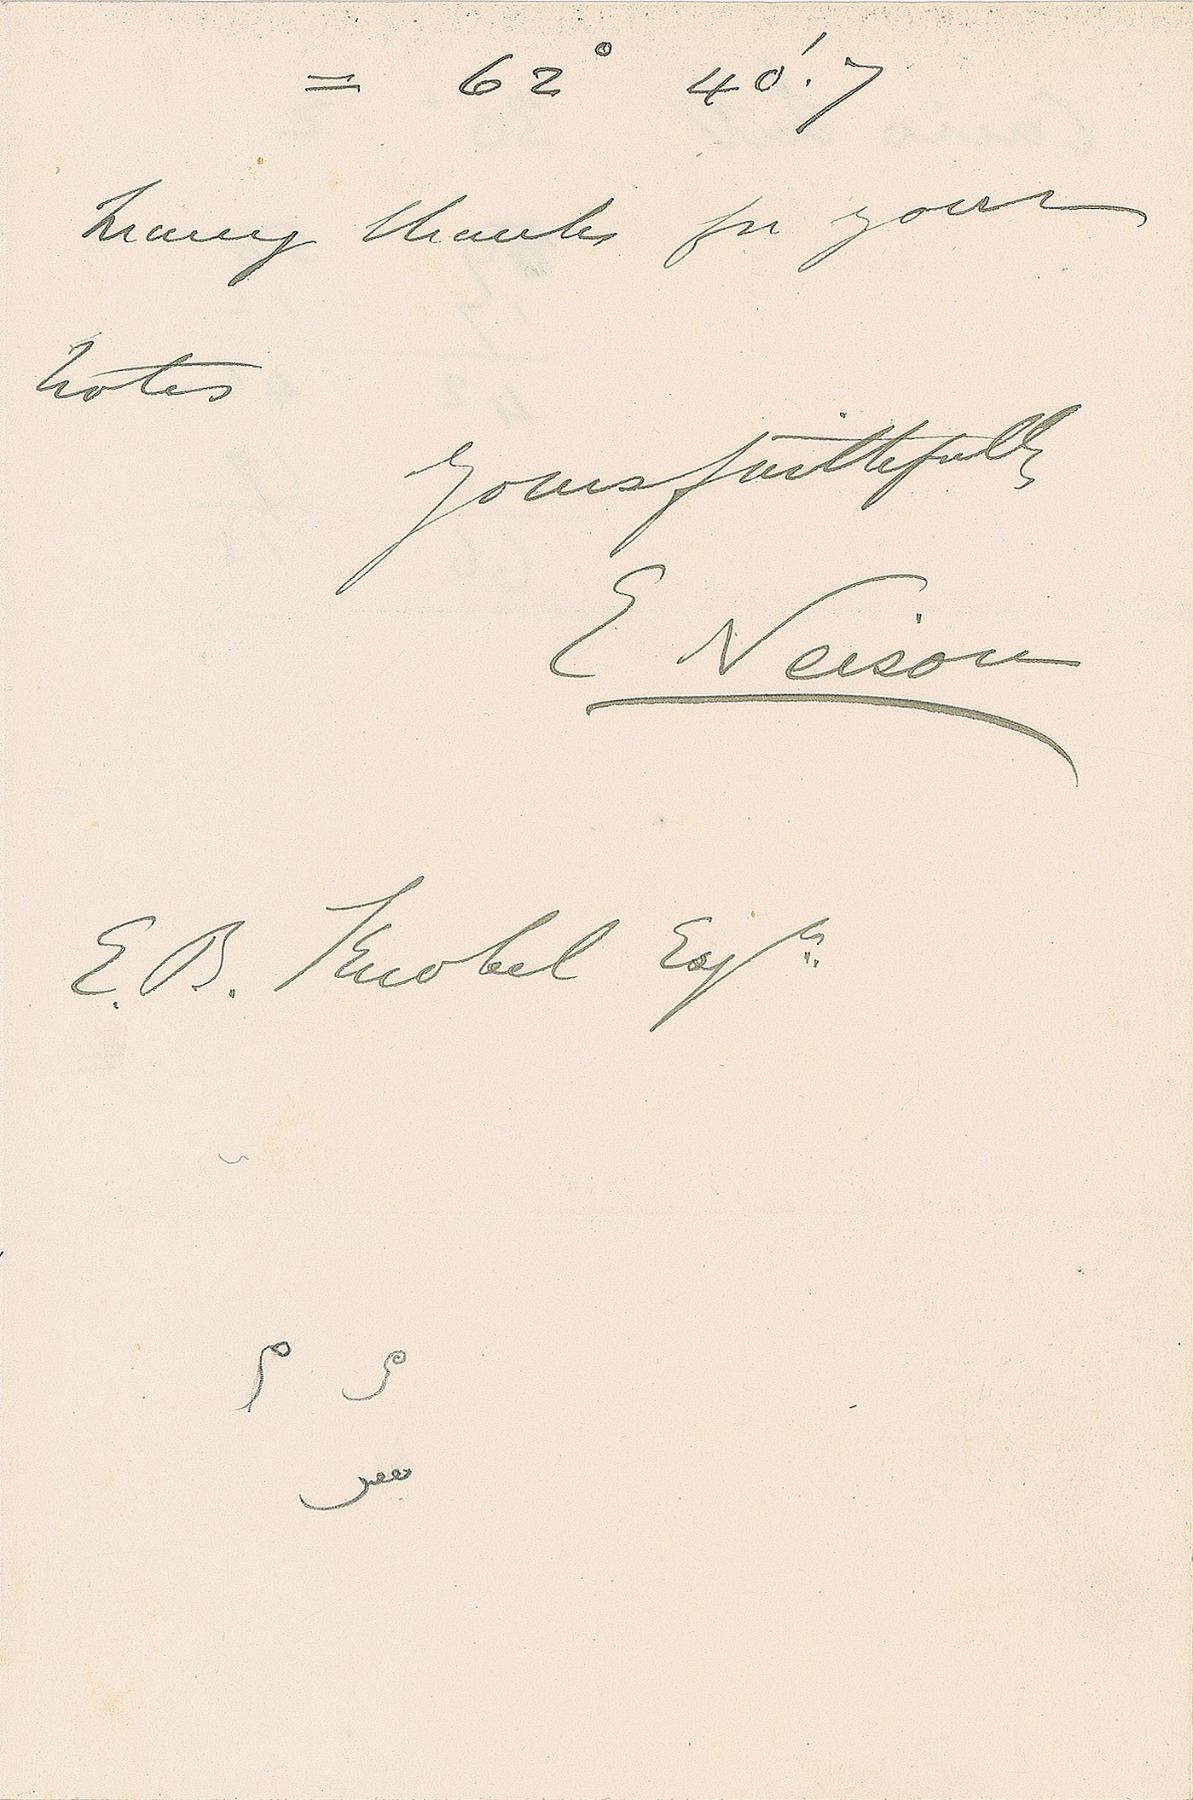 = 62° 40'.7
Many thanks for your
notes
Yours faithfully
E Neison
E. B. Knobel Esqre